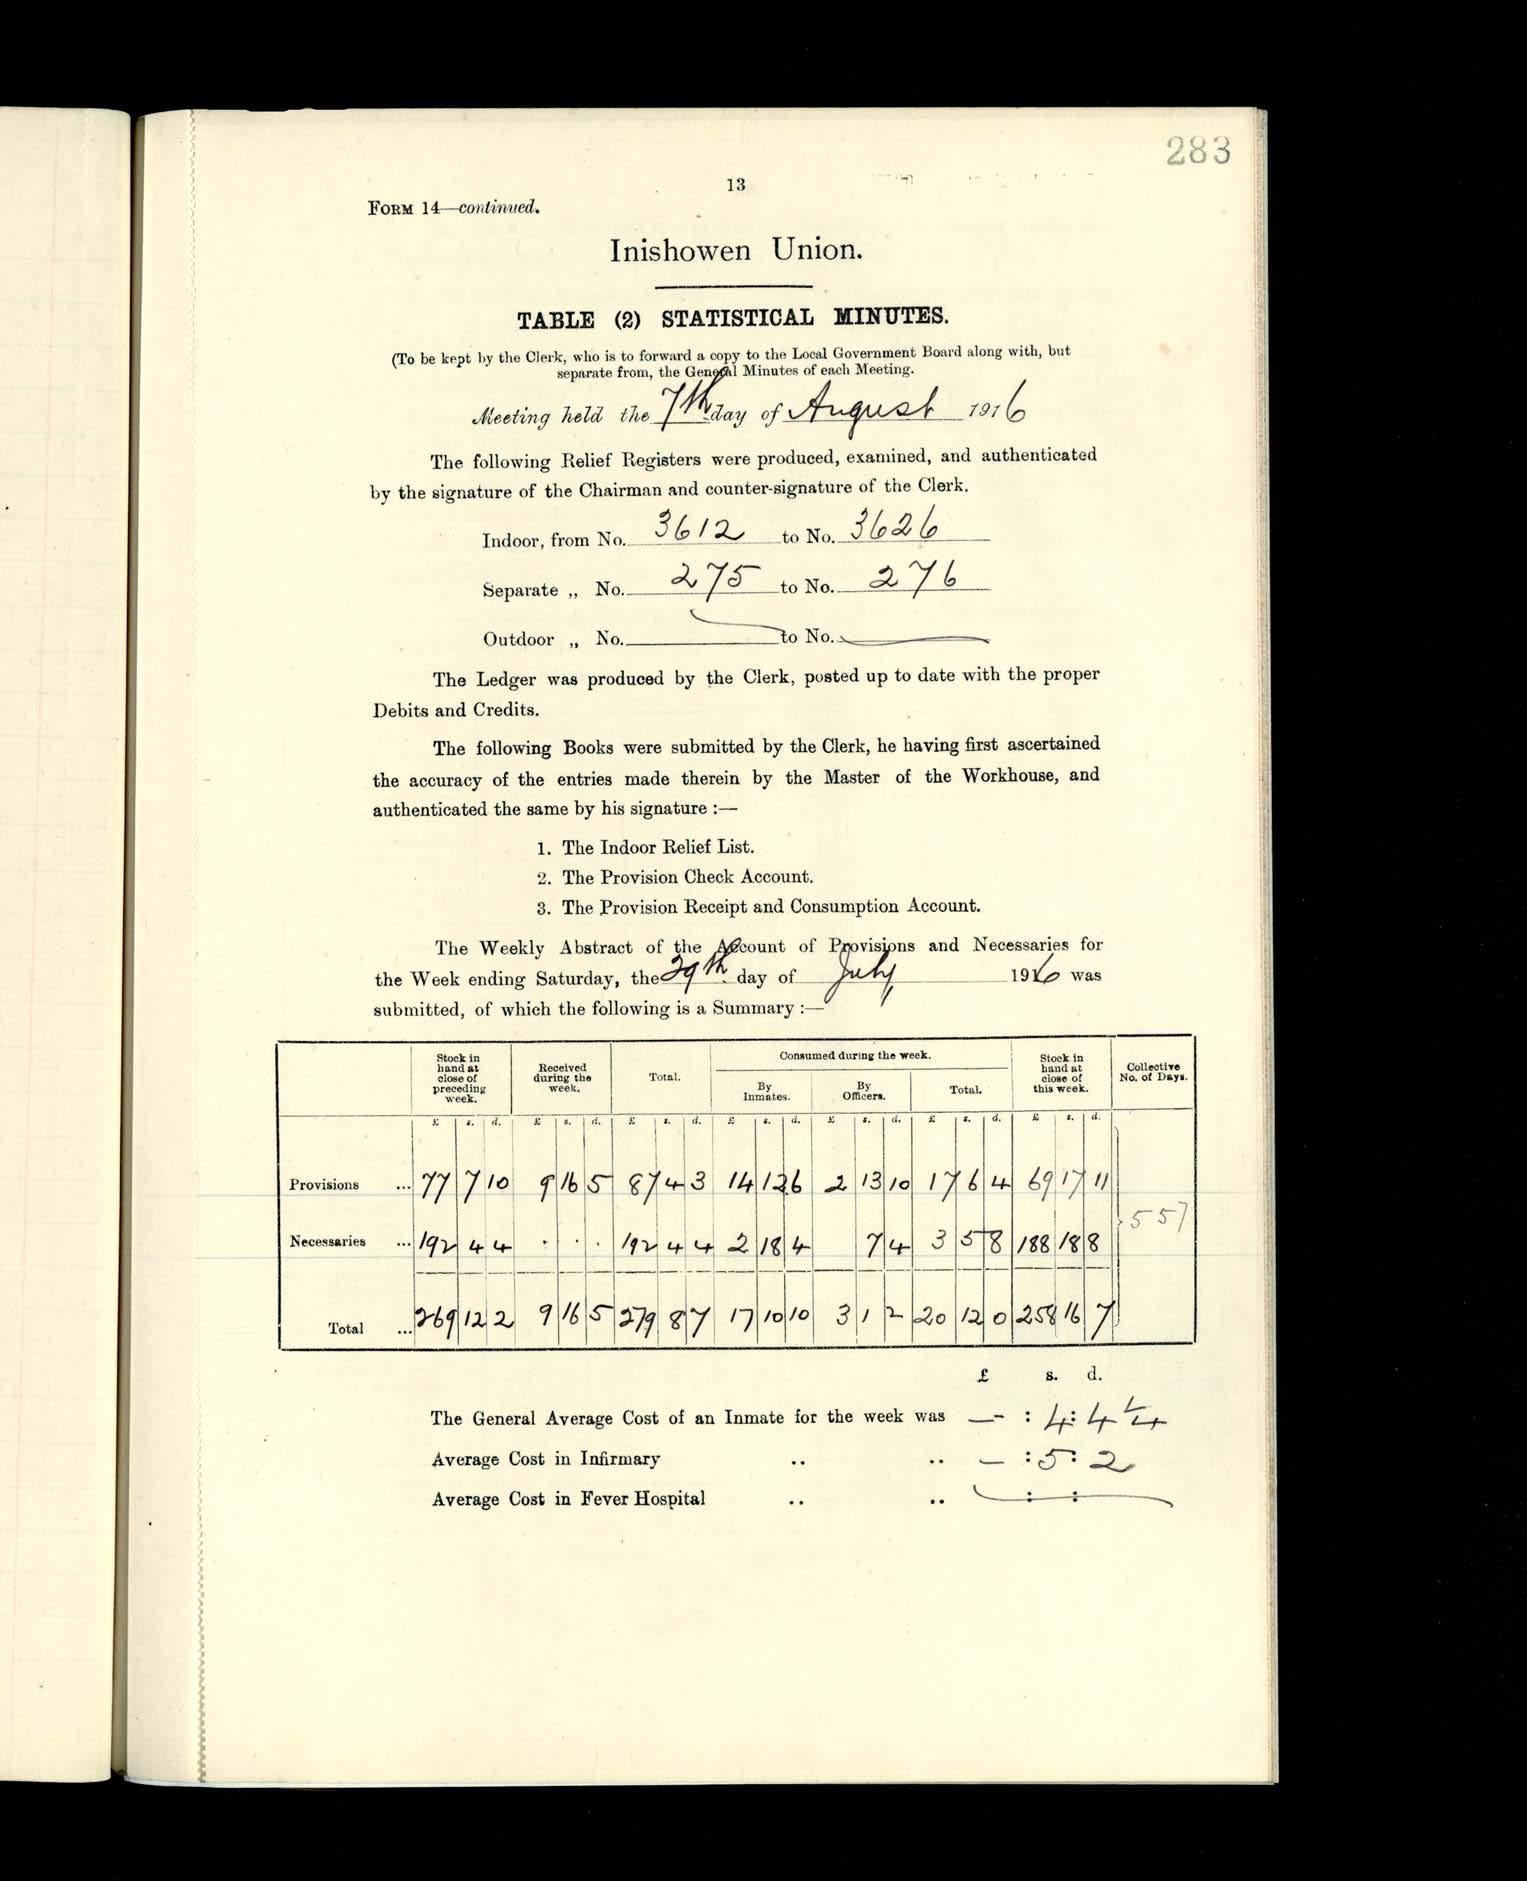 283
13
FORM 14—continued.
Inishowen Union.
TABLE (2) STATISTICAL MINUTES.
(To be kept by the Clerk, who is to forward a copy to the Local Government Board along with, but
separate from, the General Minutes of each Meeting.
Meeting held the 7th day of August 1916
The following Relief Registers were produced, examined, and authenticated
by the signature of the Chairman and counter-signature of the Clerk.
Indoor, from No. 3612 to No. 3626
Separate „ No. 275 to No. 276
Outdoor „ No. to No.
The Ledger was produced by the Clerk, posted up to date with the proper
Debits and Credits.
The following Books were submitted by the Clerk, he having first ascertained
the accuracy of the entries made therein by the Master of the Workhouse, and
authenticated the same by his signature :—
1. The Indoor Relief List.
2. The Provision Check Account.
3. The Provision Receipt and Consumption Account.
The Weekly Abstract of the Account of Provisions and Necessaries for
the Week ending Saturday, the 29th day of July 1916 was
submitted, of which the following is a Summary :—
Stock in hand at close of preceding week. Received during the week. Total. Consumed during the week. Stock in hand at close of this week. Collective No. of Days.
By Inmates. By Officers. Total.
£ s. d. £ s. d. £ s. d. £ s. d. £ s. d. £ s. d. £ s. d.
Provisions ... 77 7 10 9 16 5 87 4 3 14 12 6 2 13 10 17 6 4 69 17 11
557
Necessaries ... 192 4 4 . . . 192 4 4 2 18 4 7 4 3 5 8 188 18 8
Total ... 269 12 2 9 16 5 279 8 7 17 10 10 3 1 2 20 12 0 258 16 7
£ s. d.
The General Average Cost of an Inmate for the week was — : 4 : 4 ¼
Average Cost in Infirmary .. .. — : 5 : 2
Average Cost in Fever Hospital .. .. : :